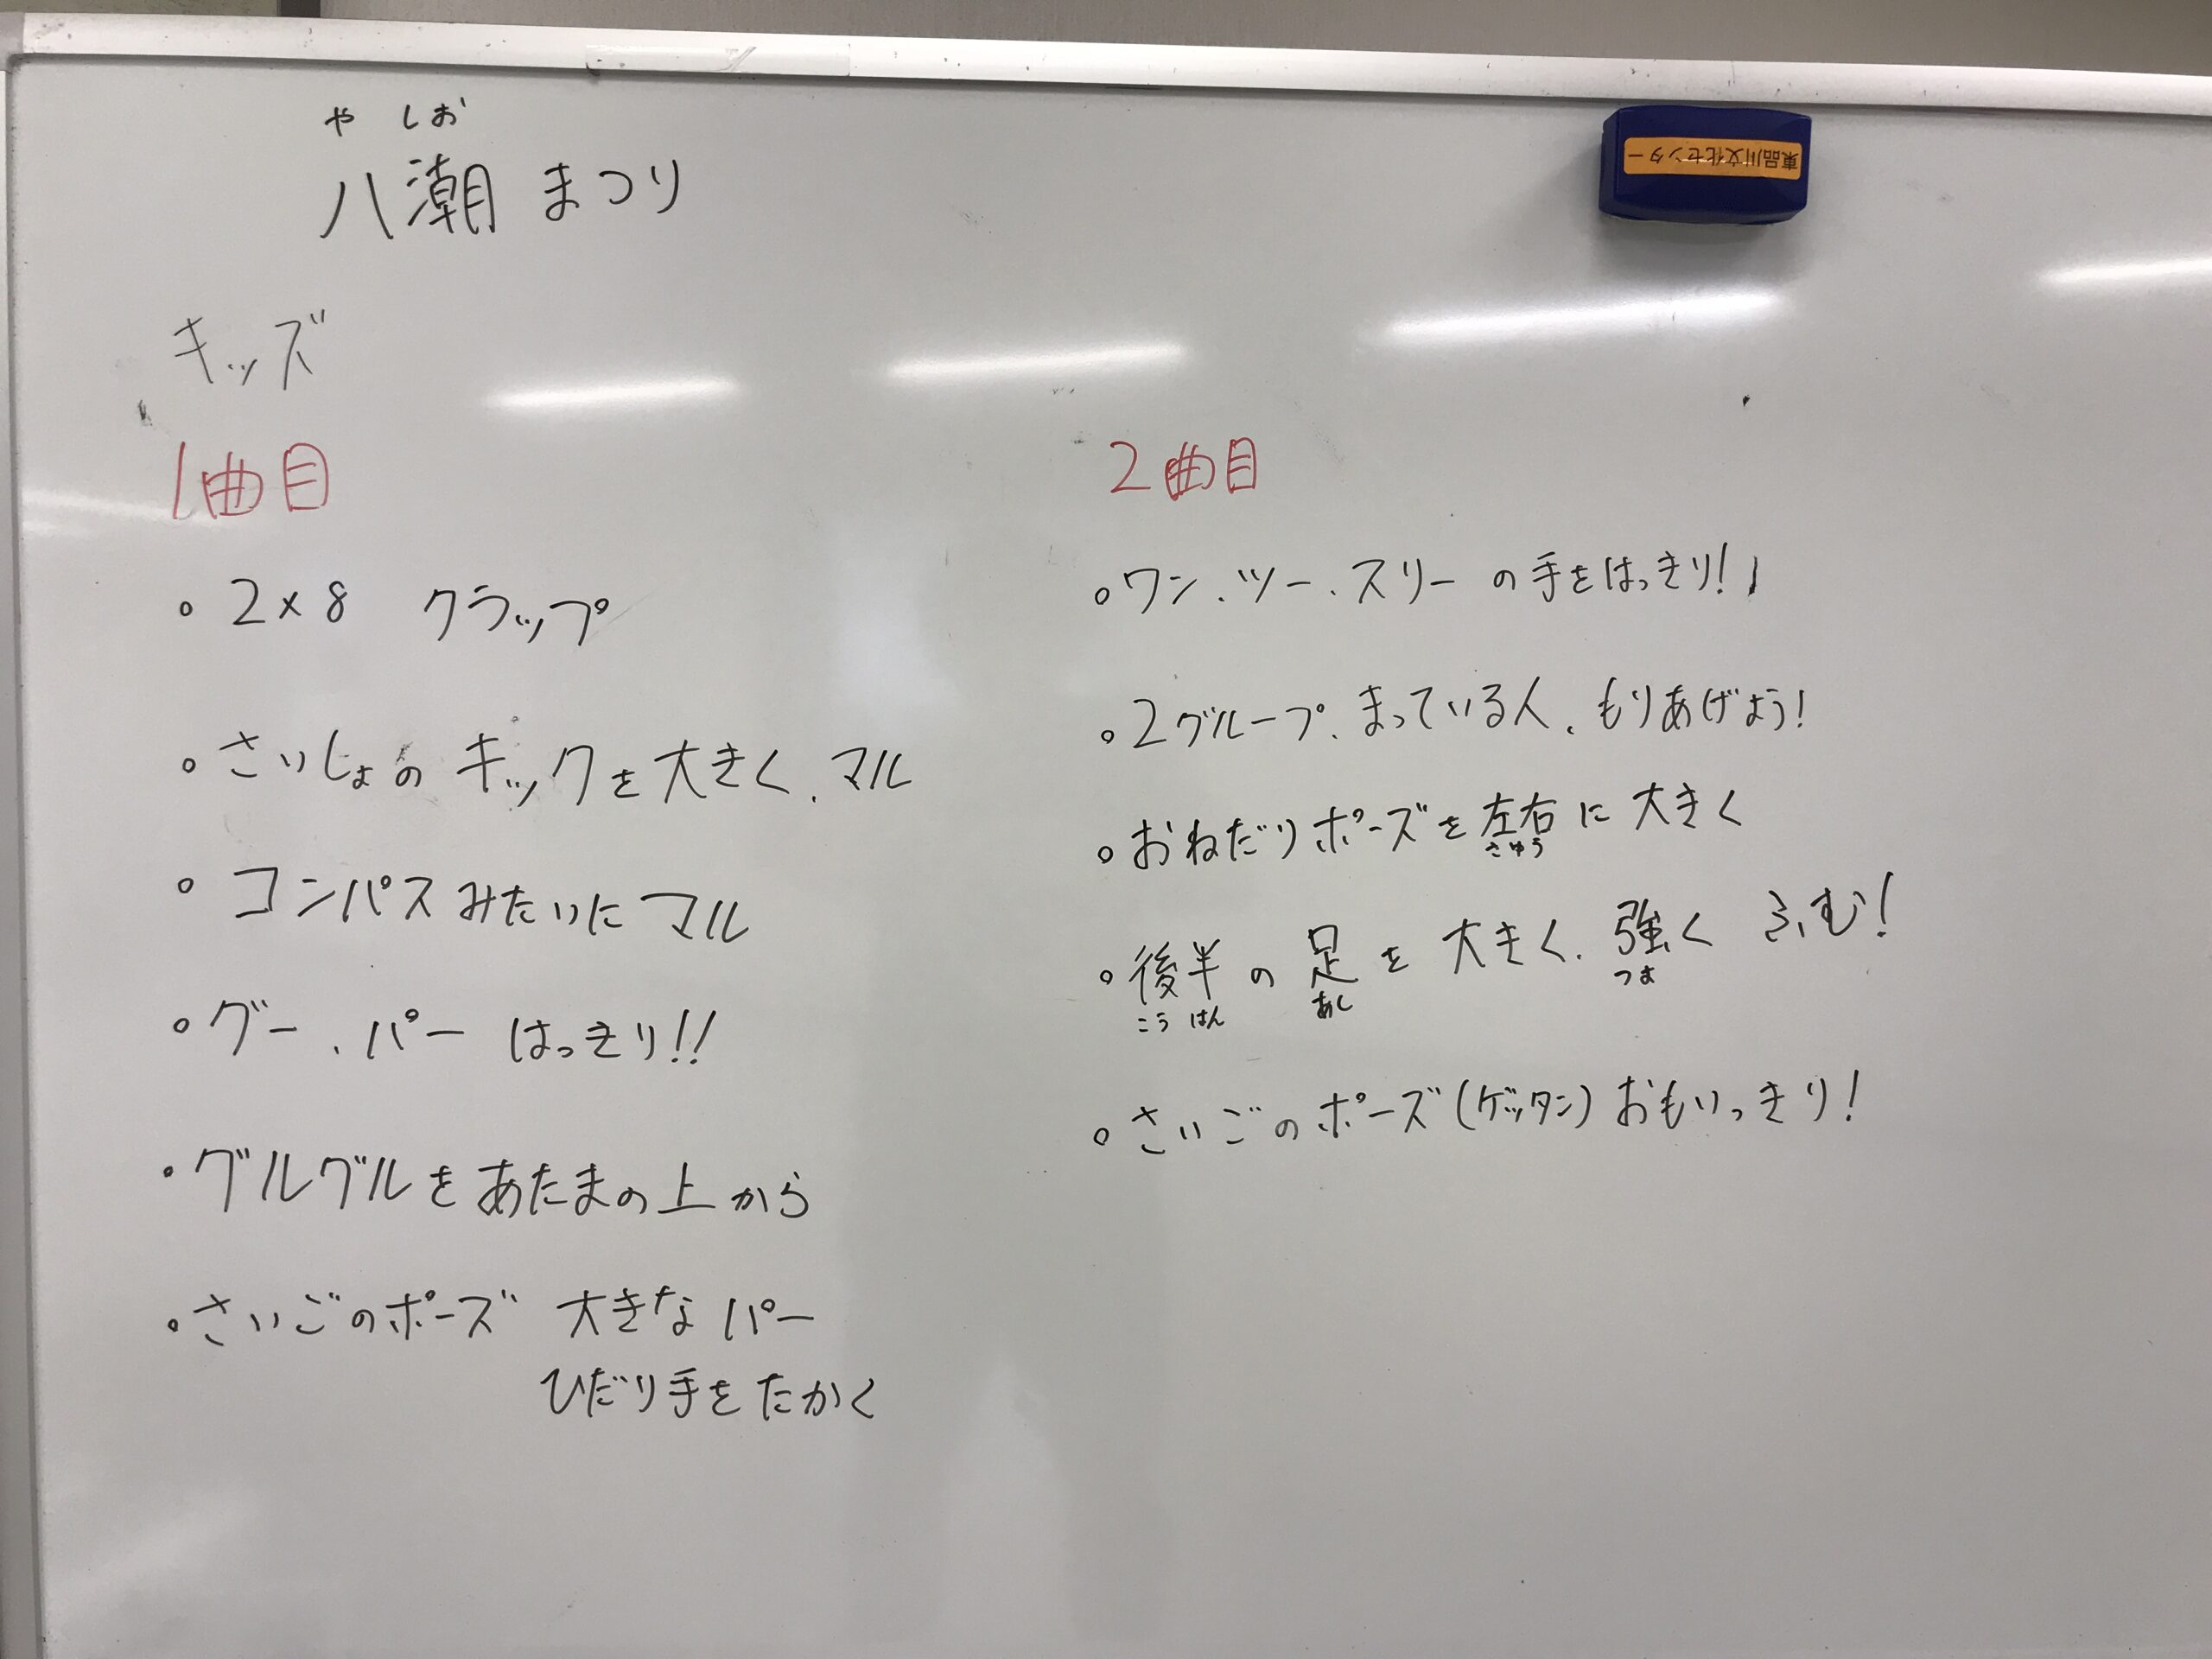 や しお
八潮 まつり
東品川文化センター
キッズ
1曲目
・2×8 クラップ
・さいしょの キックを大きく、マル
・コンパスみたいにマル
・グー、パー はっきり!!
・グルグルをあたまの上から
・さいごのポーズ 大きなパー
ひだり手をたかく
2曲目
・ワン、ツー、スリーの手をはっきり!!
・2グループ、まっている人、もりあげよう!
・おねだりポーズを左右に大きく
さゆう
・後半の足を大きく、強く ふむ!
こうはん あし つよ
・さいごのポーズ(ゲッタン)おもいっきり!